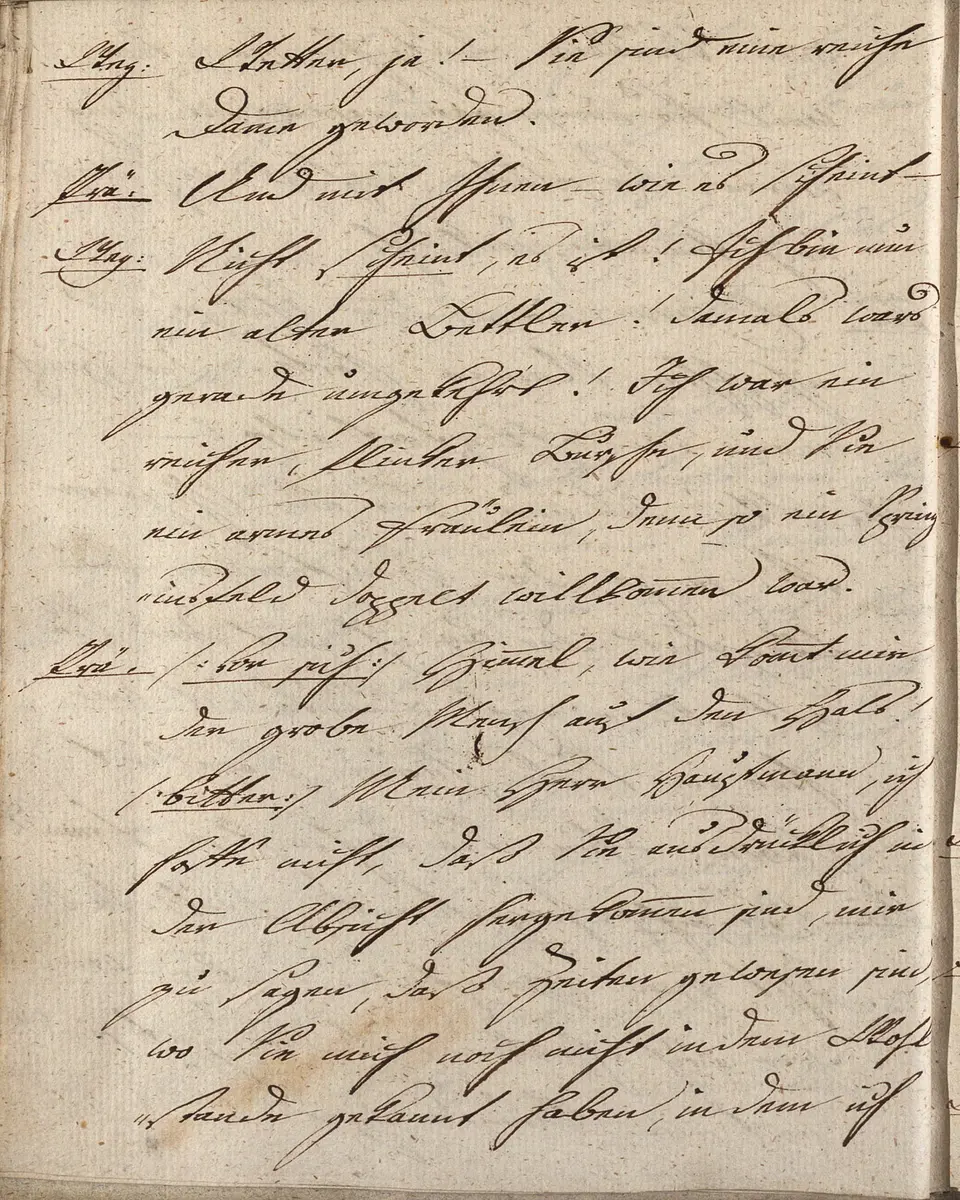 Steg: Wetter, ja! – Sie sind eine reiche
Dame geworden.
Prä: Und mit Ihnen – wie es scheint –
Steg: Nicht scheint, es ist! Ich bin nun
ein alter Bettler! damals wars
gerade umgekehrt! Ich war ein
reicher, flinker Bursche, und Sie
ein armes Fräulein, denn so ein Spring
insfeld doppelt willkom̅en war.
Prä: /: vor sich :/ Him̅el, wie kom̅t mir
der grobe Mensch auf den Hals!
/: bitter :/ Mein Herr Hauptmann, ich
hoffe nicht, daß Sie ausdrücklich in
der Absicht hergekom̅en sind, mir
zu sagen, daß Zeiten gewesen sind,
wo Sie mich noch nicht in dem Wohl
stande gekannt haben, in dem ich